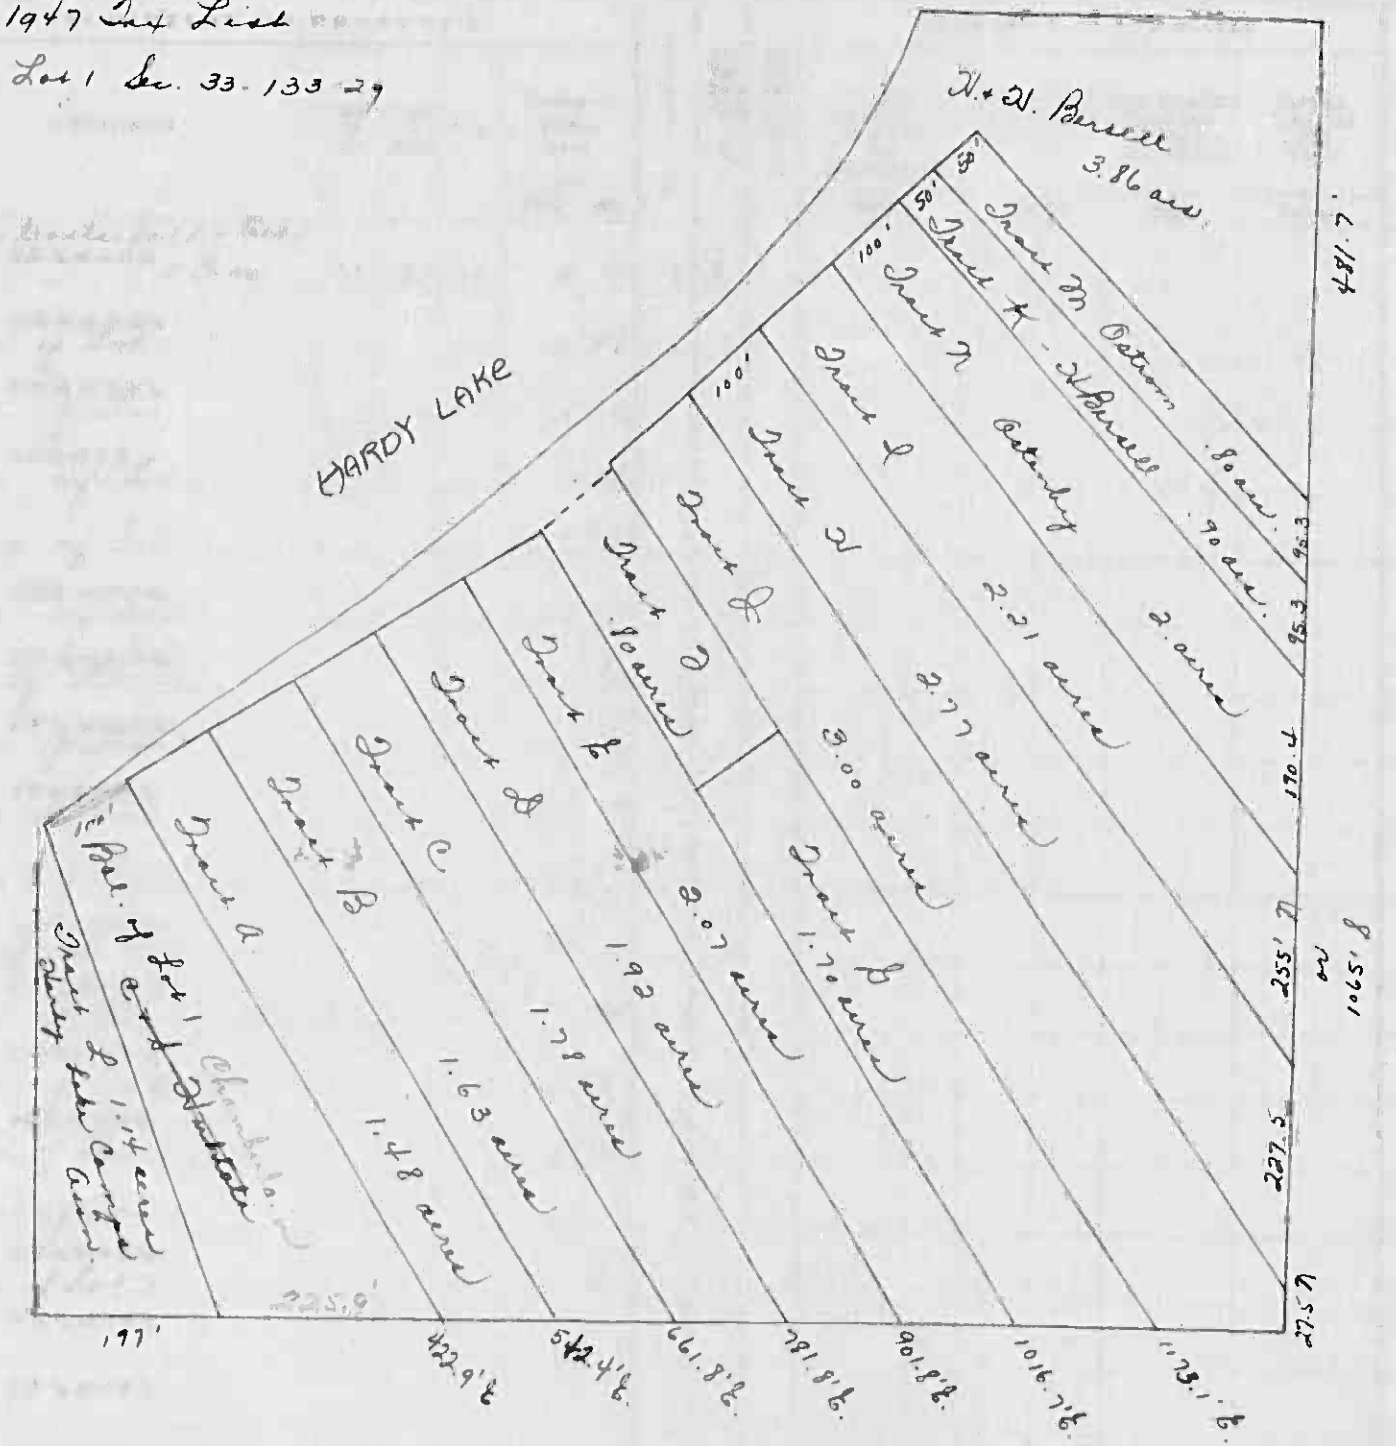 1947 Tax List
Lot 1 Sec. 33-133-29
H. + H. Bersell
3.86 acs.
481.7'
58'
50'
100'
100'
Tract M Ostrom .80 acs.
Tract K - H Bersell .90 acs.
Tract N Ostenby 2. acres
Tract I 2.21 acres
Tract H 2.77 acres
Tract J 3.00 acres
HARDY LAKE
Tract F
.80 acres
Tract G
1.70 acres
Tract E 2.07 acres
Tract D 1.92 acres
Tract C 1.78 acres
Tract B 1.63 acres
Tract A. 1.48 acres
Bal. of Lot 1
Chamberlain
Tract L 1.14 acres
Hardy Lake Camps
Assn.
95.3
95.3
190.4
255' N
or
1065.8
227.5
27.5 N
225.9'
197'
422.9' E
542.4' E.
661.8' E.
781.8' E.
901.8' E.
1016.7' E.
1173.1' E.